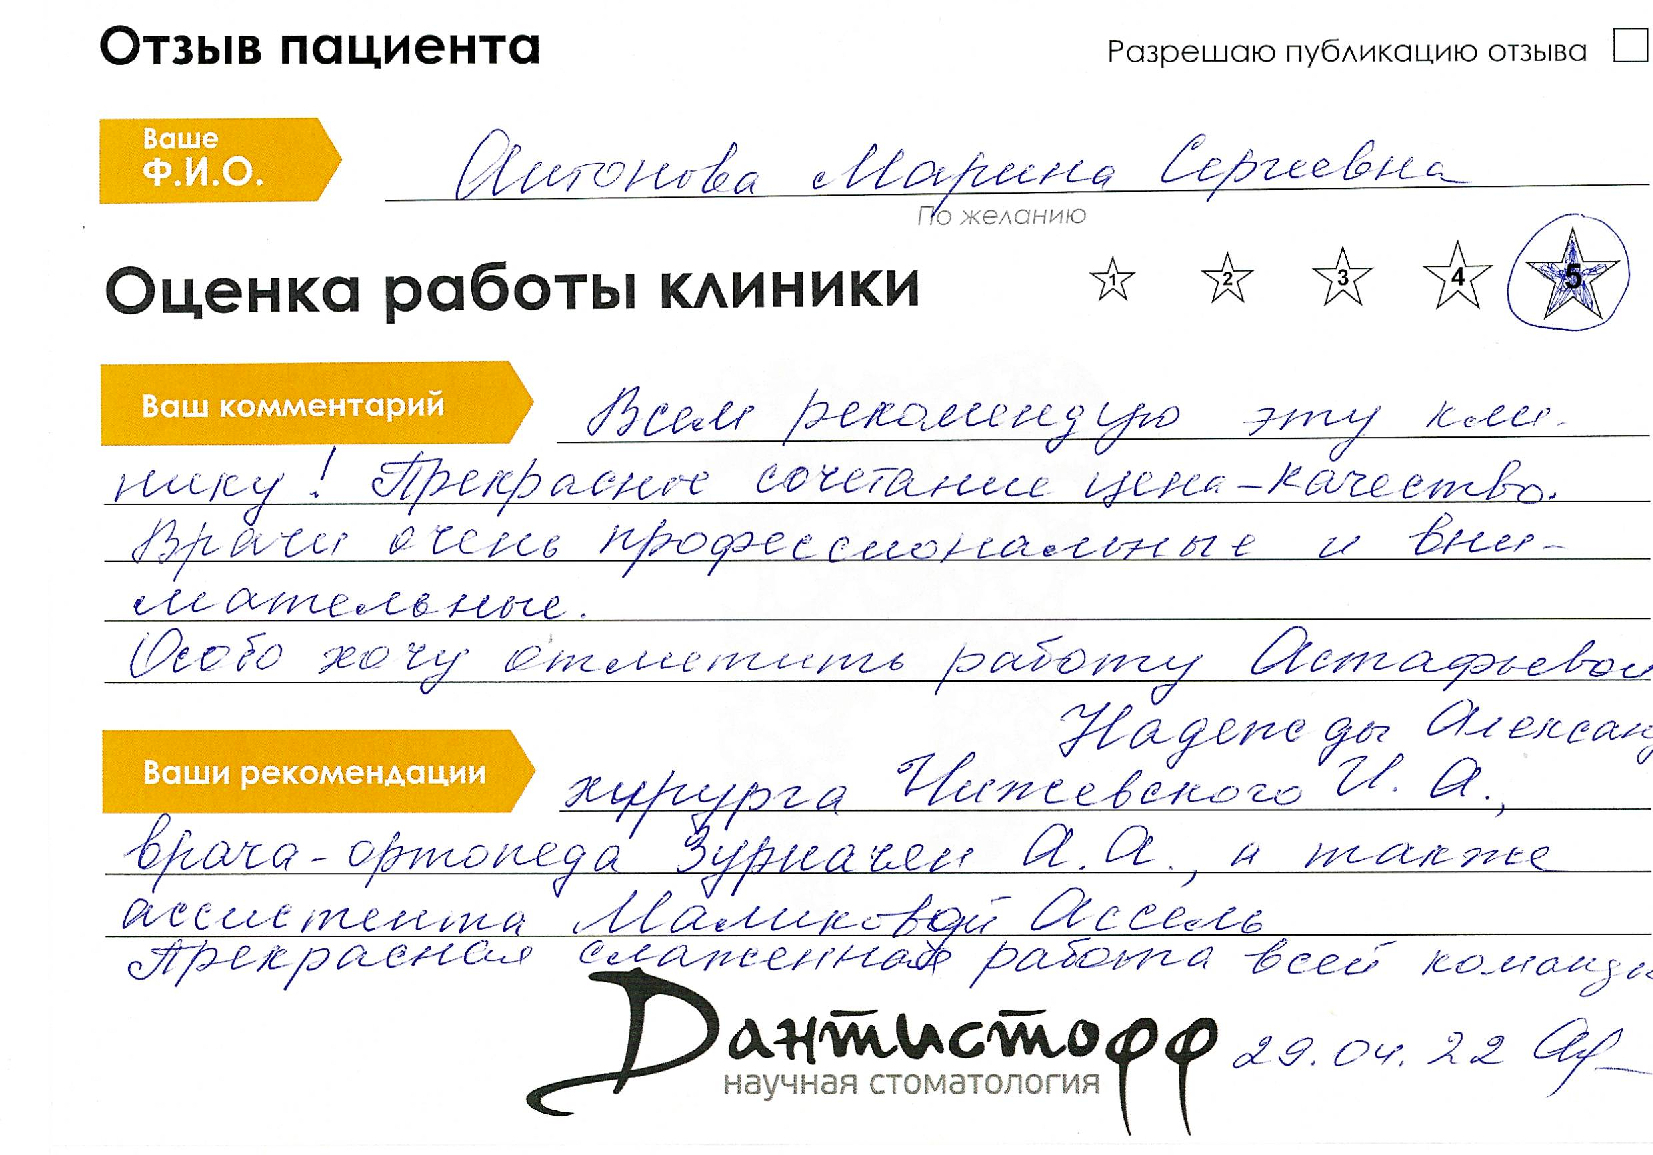 Отзыв пациента
Разрешаю публикацию отзыва
Ваше
Ф.И.О.
Антонова Марина Сергеевна
По желанию
Оценка работы клиники
1 2 3 4 5
Ваш комментарий
Всем рекомендую эту кли-
нику! Прекрасное сочетание цена-качество.
Врачи очень профессиональные и вни-
мательные.
Особо хочу отметить работу Астафьевой
Надежды Александ
Ваши рекомендации
хирурга Чижевского И. А.,
врача-ортопеда Зурначен А.А., а также
ассистента Маликовой Ассель
Прекрасная слаженная работа всей команды
Дантистофф
научная стоматология
29.04.22